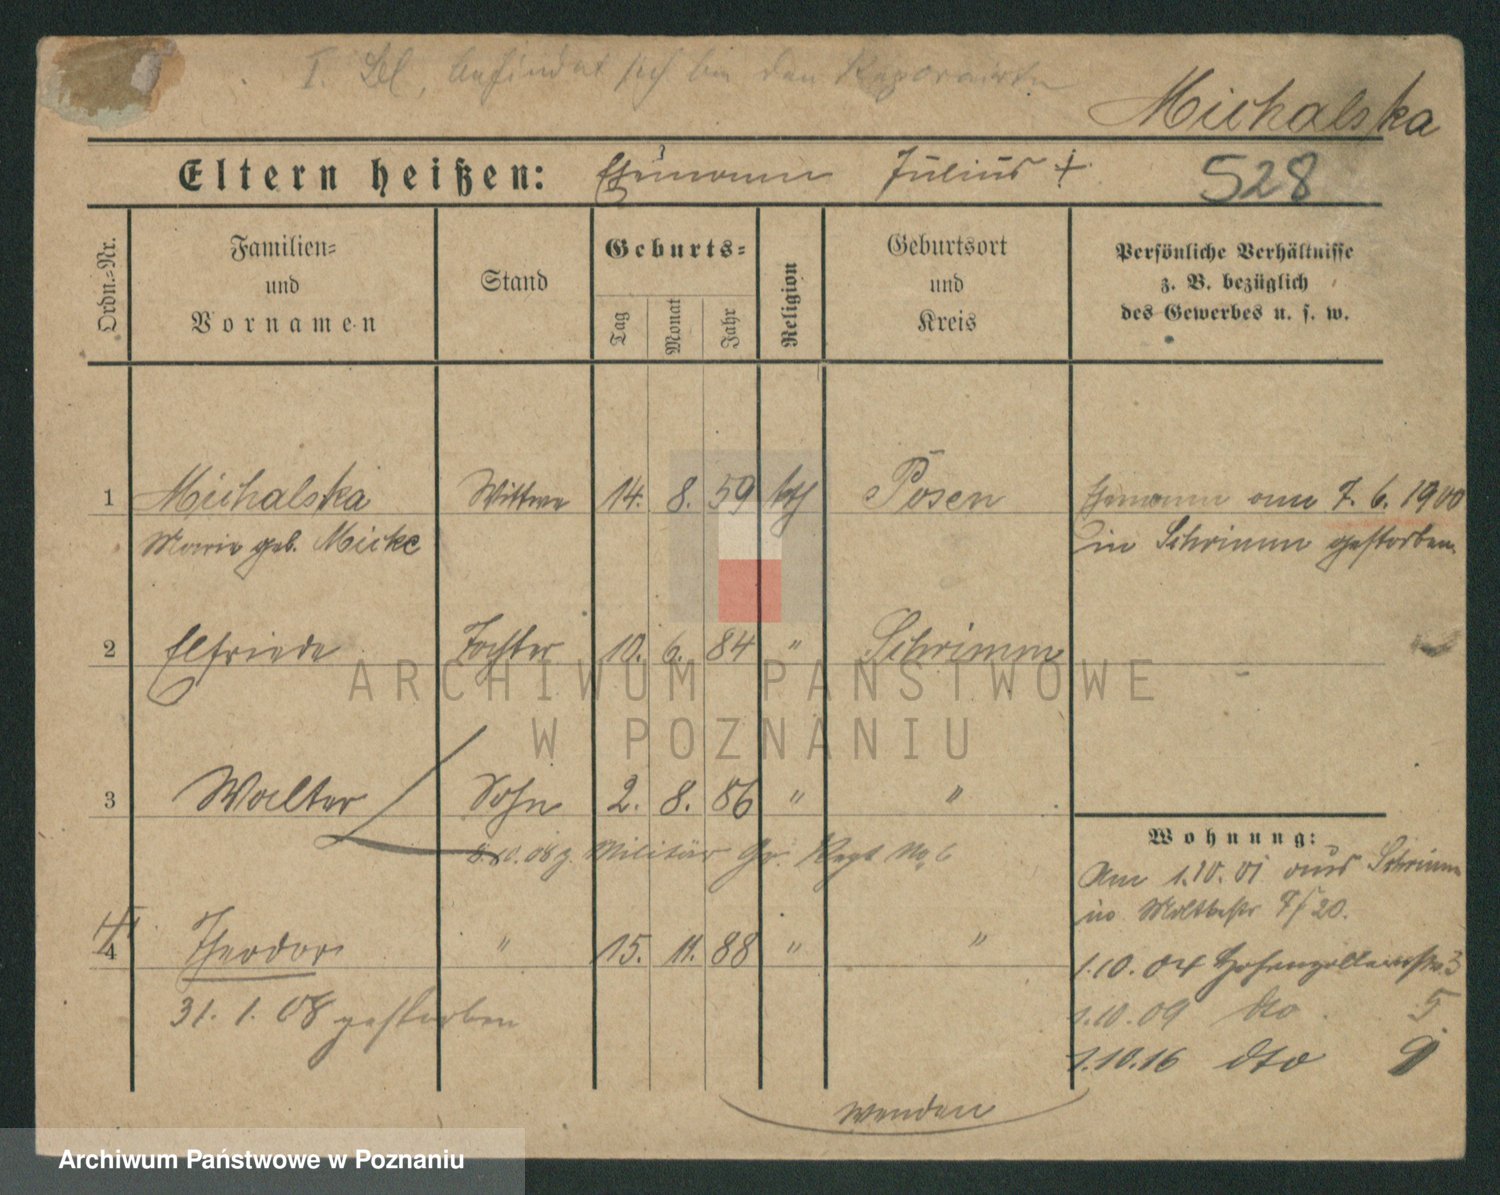 I. Bl. befindet sich bei den
Michalska
Eltern heißen: Ehemann Julius +
528
Ordn.-Nr.
Familien-
und
Vornamen
Stand
Geburts-
Tag
Monat
Jahr
Religion
Geburtsort
und
Kreis
Persönliche Verhältnisse
z. B. bezüglich
des Gewerbes u. s. w.
1 Michalska Wittwe 14. 8. 59 kth Posen Ehemann am 7. 6. 1900
Marie geb. Micke in Schrimm gestorben.
2 Elfriede Tochter 10. 6. 84 " Schrimm
3 Walter Sohn 2. 8. 86 " "
Wohnung:
z. Militär Gr. Regt No 6
Am 1.10.01 aus Schrimm
in 20.
4 Theodor " 15. 11. 88 " "
1.10.04 Hohenzollernstr 3
31. 1. 08 gestorben
1.10.09 dto 5
1.10.16 dto 9
wenden
ARCHIWUM PAŃSTWOWE
W POZNANIU
Archiwum Państwowe w Poznaniu